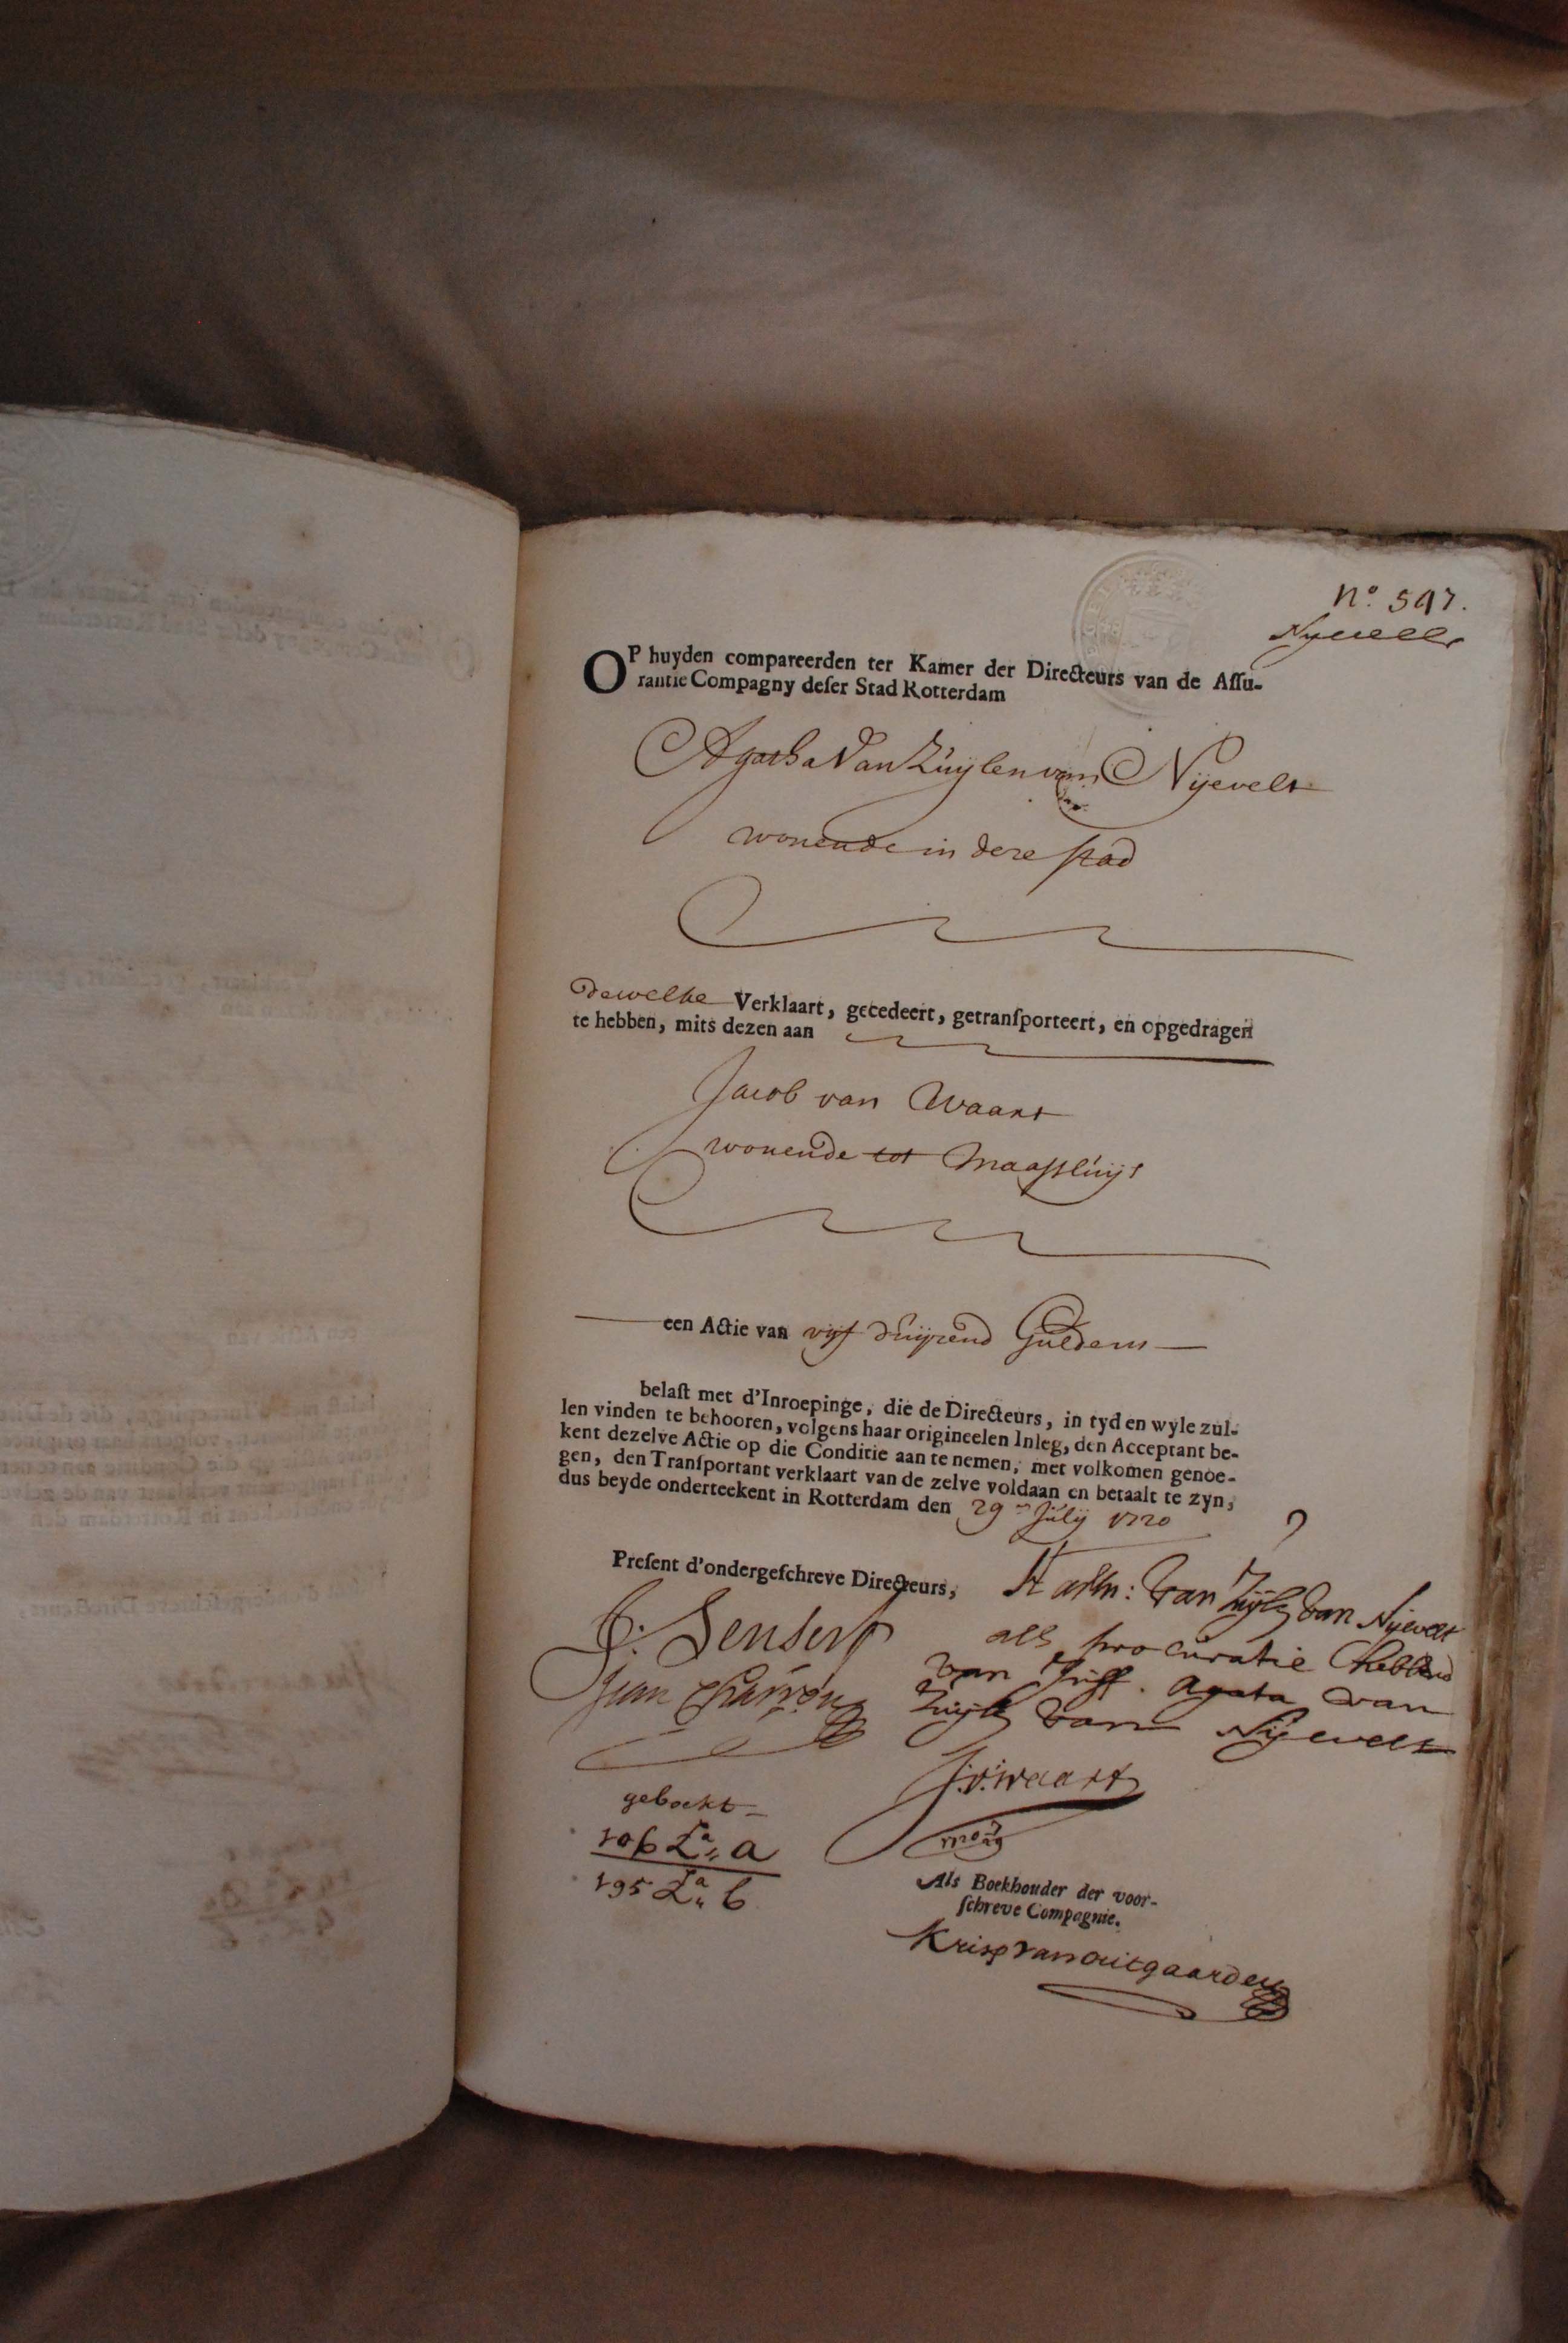 No. 597.
Nyevelt
OP huyden compareerden ter Kamer der Directeurs van de Assu-
rantie Compagny deser Stad Rotterdam
Agatha Van Zuylen van Nyevelt
wonende in deze stad
dewelke Verklaart, gecedeert, getransporteert, en opgedragen
te hebben, mits dezen aan
Jacob van Waart
wonende tot Maassluijs
een Actie van vijf duijzend Guldens
belast met d'Inroepinge, die de Directeurs, in tyd en wyle zul-
len vinden te behooren, volgens haar origineelen Inleg, den Acceptant be-
kent dezelve Actie op die Conditie aan te nemen, met volkomen genoe-
gen, den Transportant verklaart van de zelve voldaan en betaalt te zyn,
dus beyde onderteekent in Rotterdam den 29 Julij 1720
Present d'ondergeschreve Directeurs,
van Zuijl van Nijevelt
als procuratie hebbend
van Juff. Agata van
Zuijl van Nijevelt
J: Senserf
Jean Charron
J:v:waart
geboekt
106 La. a
195 La. b
Als Boekhouder der voor-
schreve Compagnie.
Krisp van outgaarden